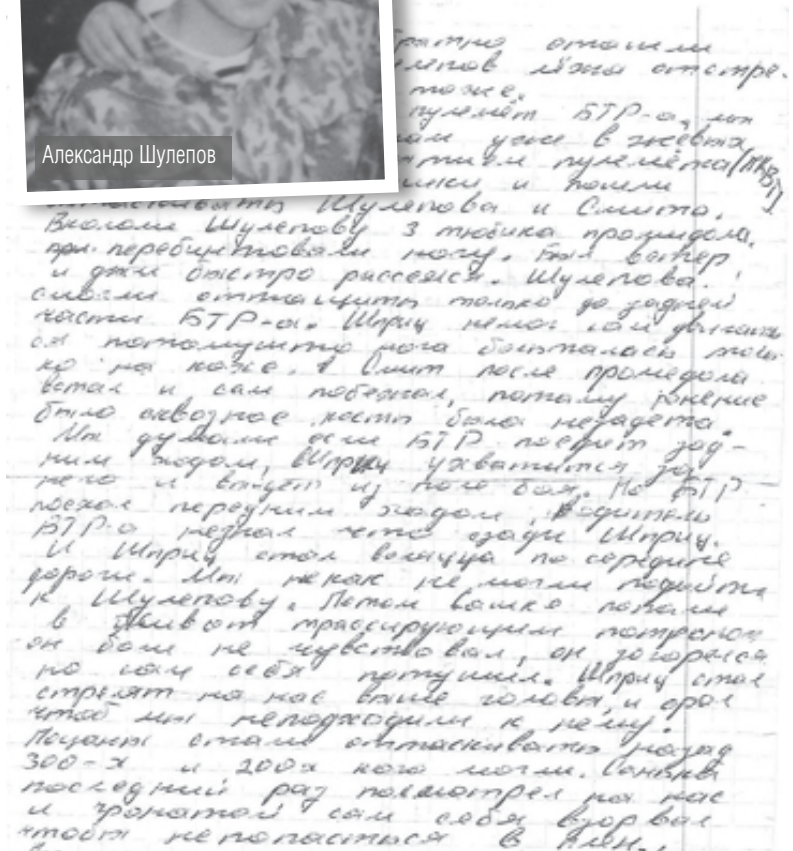 Александр Шулепов
отошли
лёжа отстре-
тоже.
пулемёт БТР-а, мы
уже в жёвтых
пулемёта (ПКВТ)
и пошли
Шулепова и Смита.
Вкололи Шулепову 3 тюбика промидола,
перебинтовали ногу. Был ветер
и дым быстро рассеялся. Шулепова
смогли оттащить только до задней
части БТР-а. Шприц немог сам двигать
ся потомушто нога болталась толь-
ко на коже. А Смит после промедола
встал и сам побежал, потому ранение
было сквозное кость была незадета.
Мы думали если БТР поедит зад-
ним ходом, Шприц ухватится за
него и выйдет из поле боя. Но БТР
поехал передним ходом, водитель
БТР-а незнал что сзади Шприц.
И Шприц стал по середине
дороги. Мы некак не могли подойти
к Шулепову. Потом Сашке попали
в живот трассирующим патроном
он боли не чувствовал, он загорелся
но сам себя потушил. Шприц стал
стрелят на нас выше головы, и орал
чтоб мы неподходили к нему.
Пацаны стали оттаскивать назад
300-х и 200х кого могли. Санька
последний раз посмотрел на нас
и гранатой сам себя взорвал
чтобы непопасться в плен.